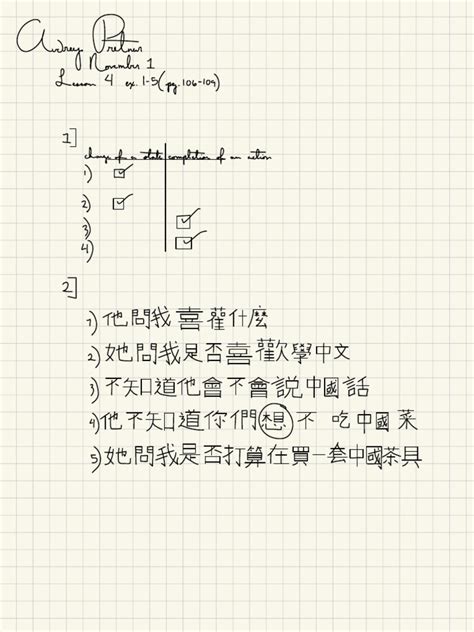 Audrey Pretnar
November 1
Lesson 4 ex. 1-5 (pg. 106-109)
1]
change of a state completion of an action
1)
2)
3)
4)
2]
1) 他問我喜歡什麼
2) 她問我是否喜歡學中文
3) 不知道他會不會説中國話
4) 他不知道你們想不 吃中國菜
5) 她問我是否打算在買一套中國茶具